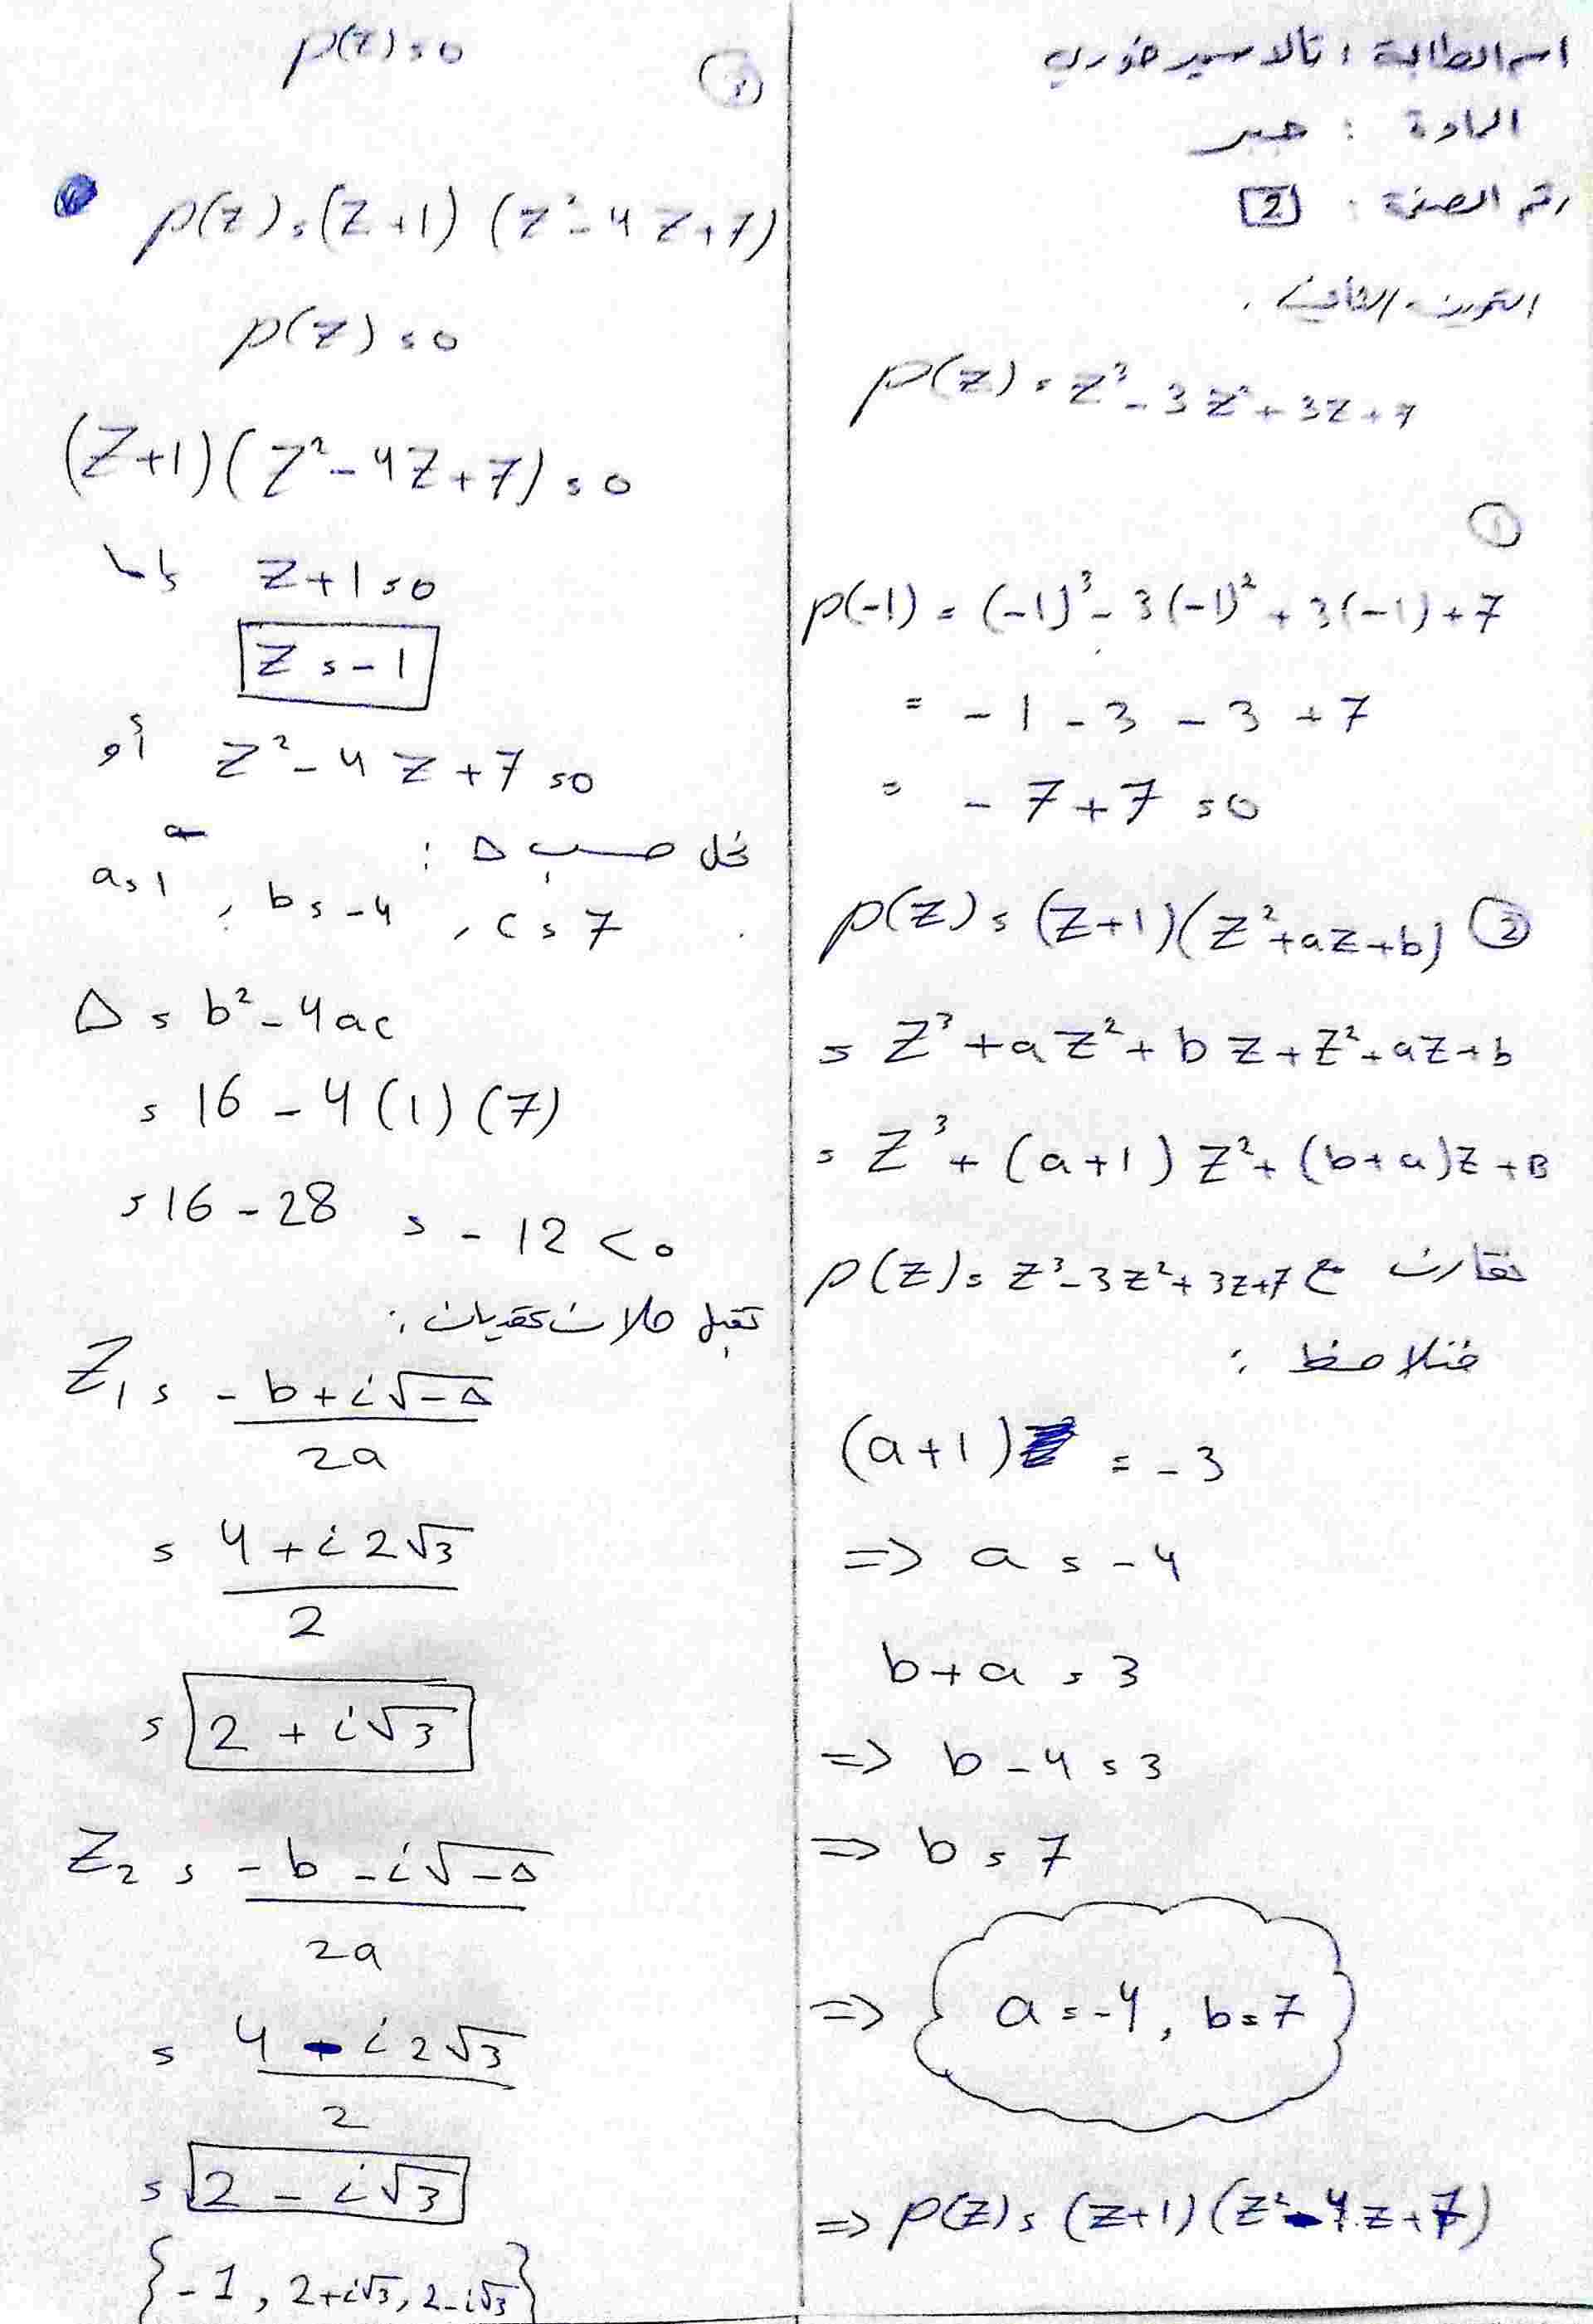 اسم الطالبة : تالا سمير خوري
المادة : جبر
رقم الصفحة : [2]
التمرين الثاني :
p(z) = z³ - 3z² + 3z + 7
①
p(-1) = (-1)³ - 3(-1)² + 3(-1) + 7
= -1 - 3 - 3 + 7
= -7 + 7 = 0
p(z) = (z+1)(z² + az + b) ②
= z³ + az² + bz + z² + az + b
= z³ + (a+1)z² + (b+a)z + B
نقارن مع p(z) = z³ - 3z² + 3z + 7
فنلاحظ :
(a+1) = -3
=> a = -4
b + a = 3
=> b - 4 = 3
=> b = 7
=> a = -4, b = 7
=> p(z) = (z+1)(z² - 4z + 7)
p(z) = 0
p(z) = (z+1)(z² - 4z + 7)
p(z) = 0
(z+1)(z² - 4z + 7) = 0
إما z + 1 = 0
z = -1
أو z² - 4z + 7 = 0
نحل حسب Δ :
a = 1, b = -4, c = 7
Δ = b² - 4ac
= 16 - 4(1)(7)
= 16 - 28 = -12 < 0
تقبل حلان عقديان :
z₁ = (-b + i√-Δ) / 2a
= (4 + i2√3) / 2
= 2 + i√3
z₂ = (-b - i√-Δ) / 2a
= (4 - i2√3) / 2
= 2 - i√3
{-1, 2+i√3, 2-i√3}